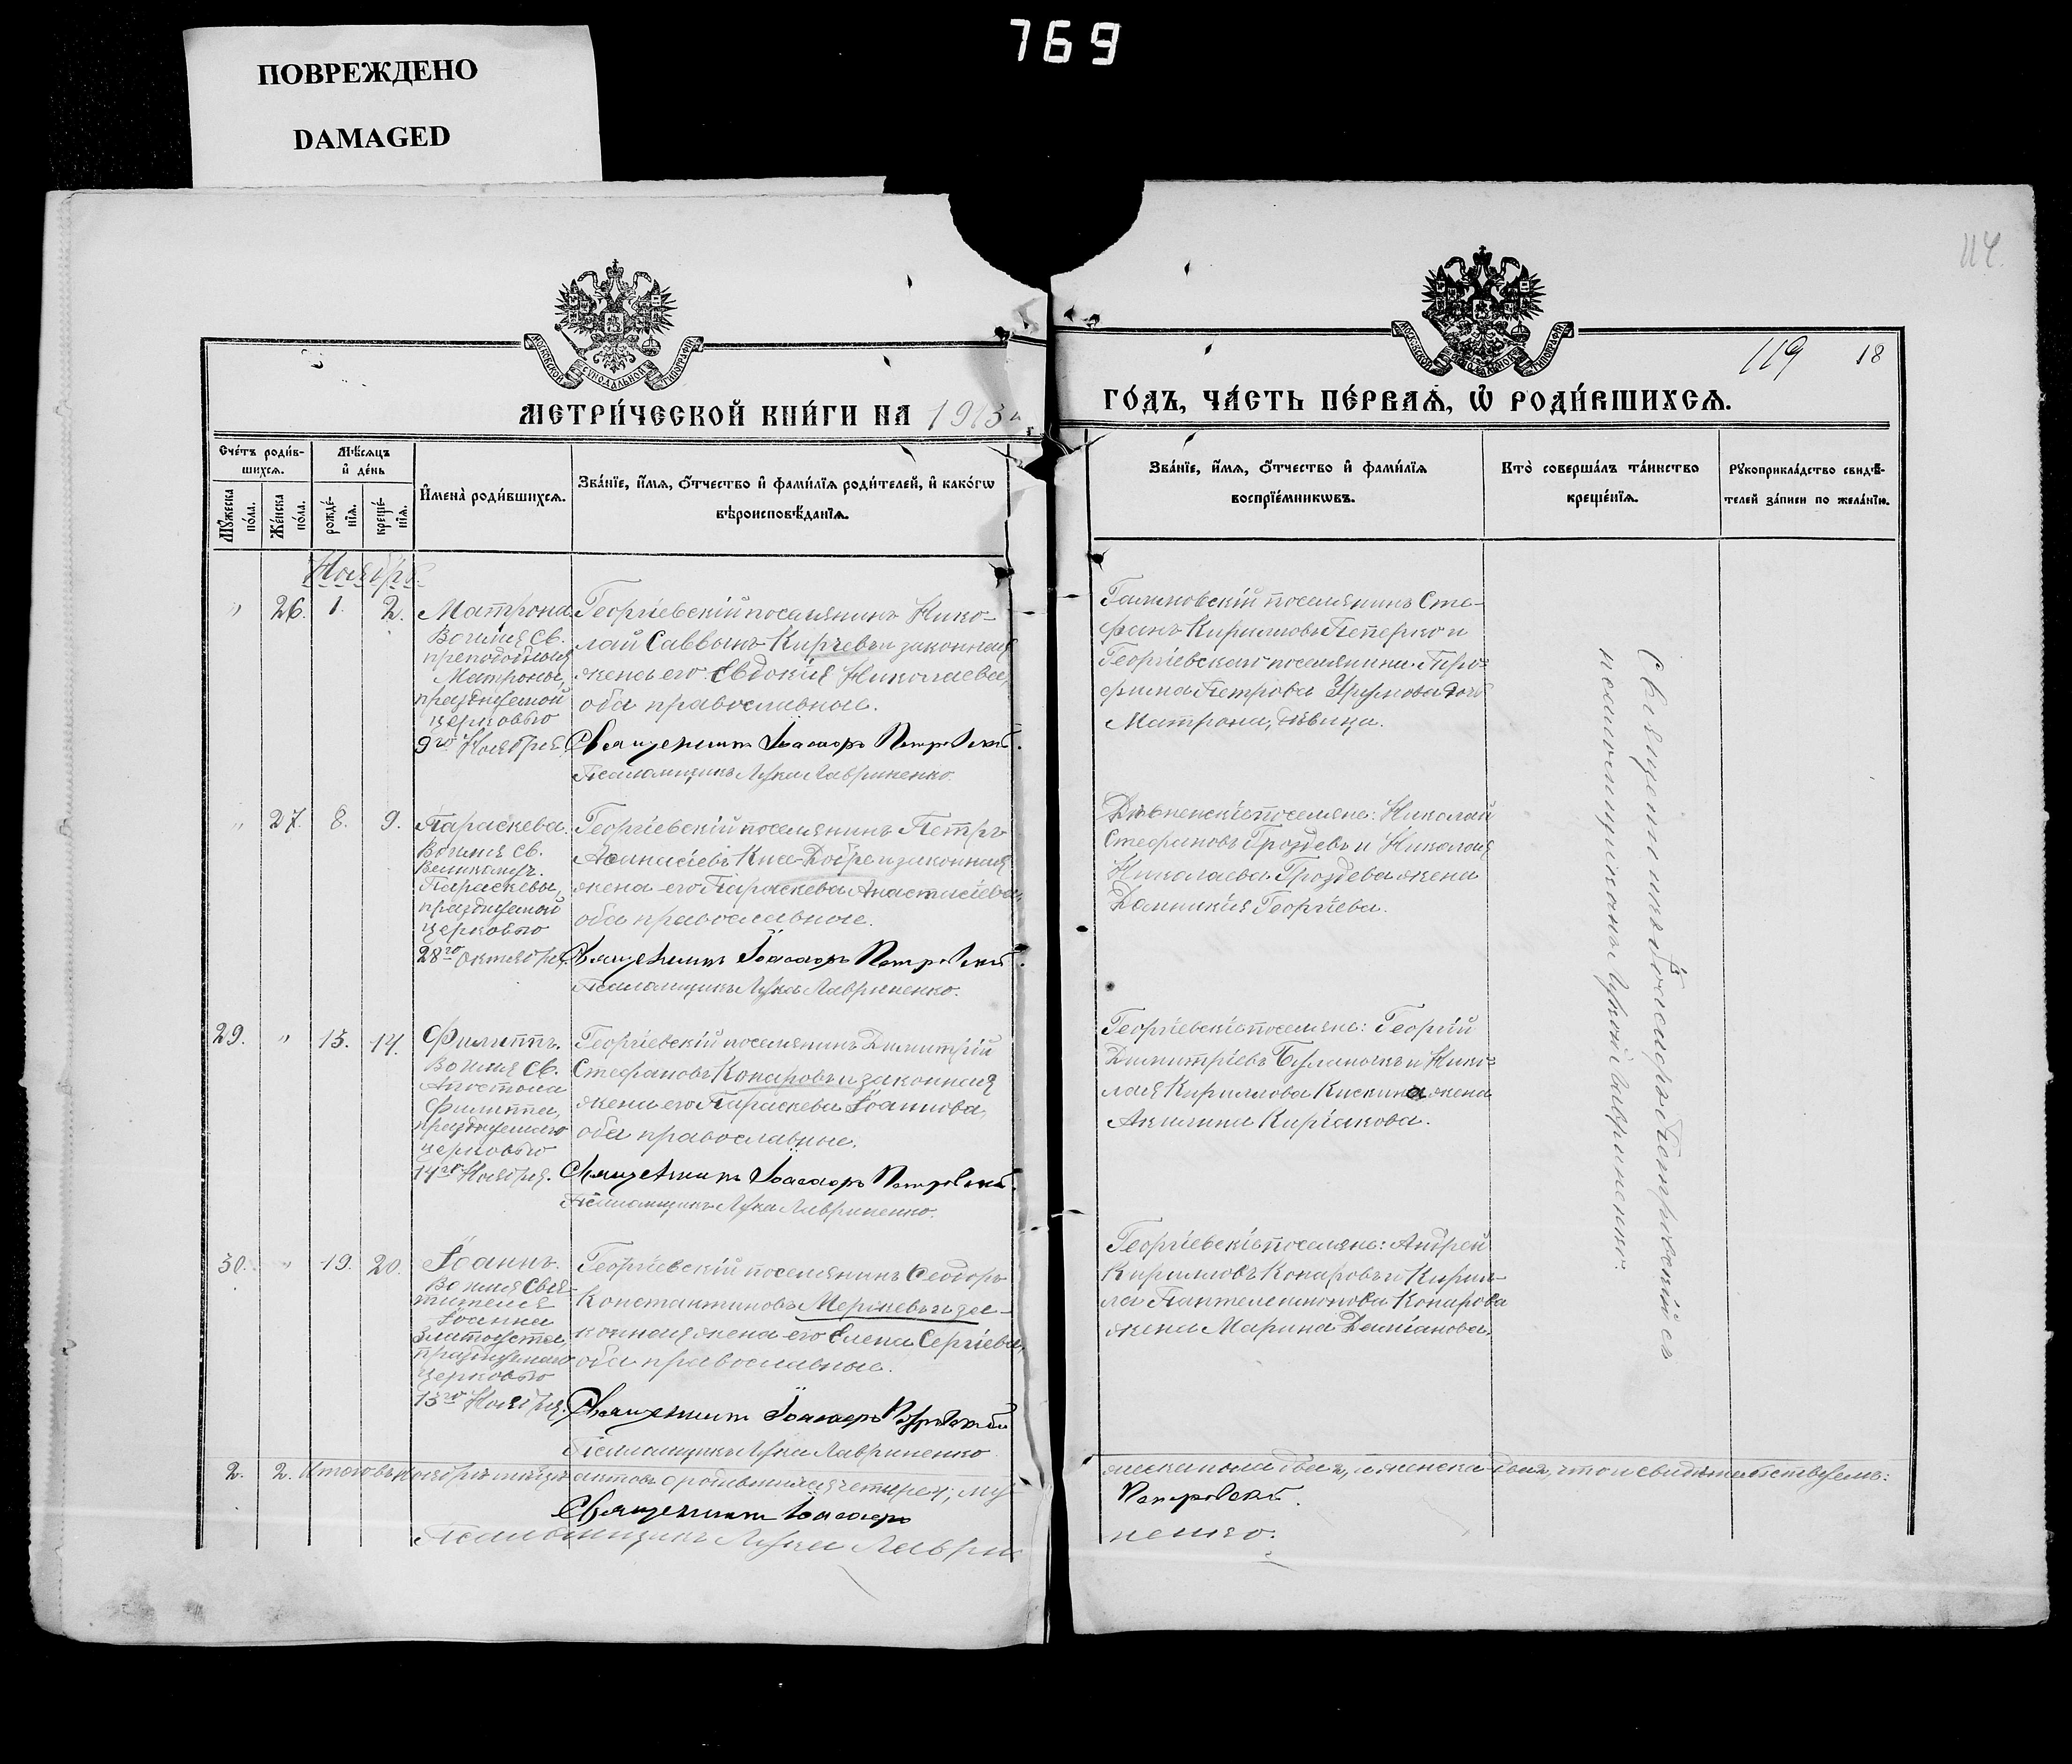 769
ПОВРЕЖДЕНО
DAMAGED
114.
119 18
МОСКОВСКОЙ СУНОДАЛЬНОЙ ТИПОГРАФІИ
МОСКОВСКОЙ СУНОДАЛЬНОЙ ТИПОГРАФІИ
МЕТРИ́ЧЕСКОЙ КНИ́ГИ НА 1913
ГО́ДЪ, ЧА́СТЬ ПЕ́РВАѦ, Ѡ РОДИ́ВШИХСѦ.
Сче́тъ роди́в-
шихсѧ.
Мꙋ́жеска по́ла.
Же́нска по́ла.
Мѣ́сѧцъ
и҆ де́нь
рожде́-
нїѧ.
креще́-
нїѧ.
И҆мена̀ роди́вшихсѧ.
Зва́нїе, и҆́мѧ, ѻ҆́тчество и҆ фами́лїѧ роди́телей, и҆ како́гѡ
вѣроисповѣ́данїѧ.
Зва́нїе, и҆́мѧ, ѻ҆́тчество и҆ фами́лїѧ
воспрїе́мникѡвъ.
Кто̀ соверша́лъ та́инство
креще́нїѧ.
Рꙋкоприкла́дство свидѣ́-
телей за́писи по жела́нїю.
Ноябрь.
" 26. 1. 2.
Матрона
Во имя св.
преподобныя
Матроны,
празднуемой
церковью
9го Ноября.
Георгіевскій поселянинъ Нико-
лай Саввинъ Кирчевъ и законная
жена его Евдокія Николаева,
оба православные.
Священникъ Іоасафъ Петровскій.
Псаломщикъ Лука Лавриненко.
Стефанъ Кирилловъ и
Георгіевскаго поселянина Тро-
фима Петрова дочь
Матрона, дѣвица.
" 27. 8. 9.
Параскева.
Во имя св.
Великомуч.
Параскевы,
празднуемой
церковью
28го Октября.
Георгіевскій поселянинъ Петръ
Аѳанасіевъ и законная
жена его Параскева Анастасіева,
оба православные.
Священникъ Іоасафъ Петровскій.
Псаломщикъ Лука Лавриненко.
поселяне: Николай
Стефановъ Гроздевъ и Николая
Николаева Гроздева жена
Домникія Георгіева.
29. " 13. 14.
Филиппъ.
Во имя св.
Апостола
Филиппа,
празднуемаго
церковью
14го Ноября.
Георгіевскій поселянинъ Димитрій
Стефановъ Конаровъ и законная
жена его Параскева Іоаннова,
оба православные.
Священникъ Іоасафъ Петровскій.
Псаломщикъ Лука Лавриненко.
Георгіевскіе поселяне: Георгій
Димитріевъ и Нико-
лая Кириллова Кискина жена
Акилина Киріакова.
30. " 19. 20.
Іоаннъ.
Во имя Свя-
тителя
Іоанна
Златоуста,
празднуемаго
церковью
13го Ноября.
Георгіевскій поселянинъ Ѳеодоръ
Константиновъ Мерчевъ и за-
конная жена его Елена Сергіева,
оба православные.
Священникъ Іоасафъ Петровскій
Псаломщикъ Лука Лавриненко
Георгіевскіе поселяне: Андрей
Кирилловъ Конаровъ и Кирил-
ла Пантелеимонова Конарова
жена Марина Даміанова.
Священникъ Іоасафъ Петровскій съ
псаломщикомъ Лукой Лавриненко.
2. 2. Итого въ Ноябрѣ мѣсяцѣ актовъ о родившихся четыре; му-
жеска пола два 2, и женска два 2, что и свидѣтельствуемъ:
Священникъ Іоасафъ Петровскій.
Псаломщикъ Лука Лаври
ненко.